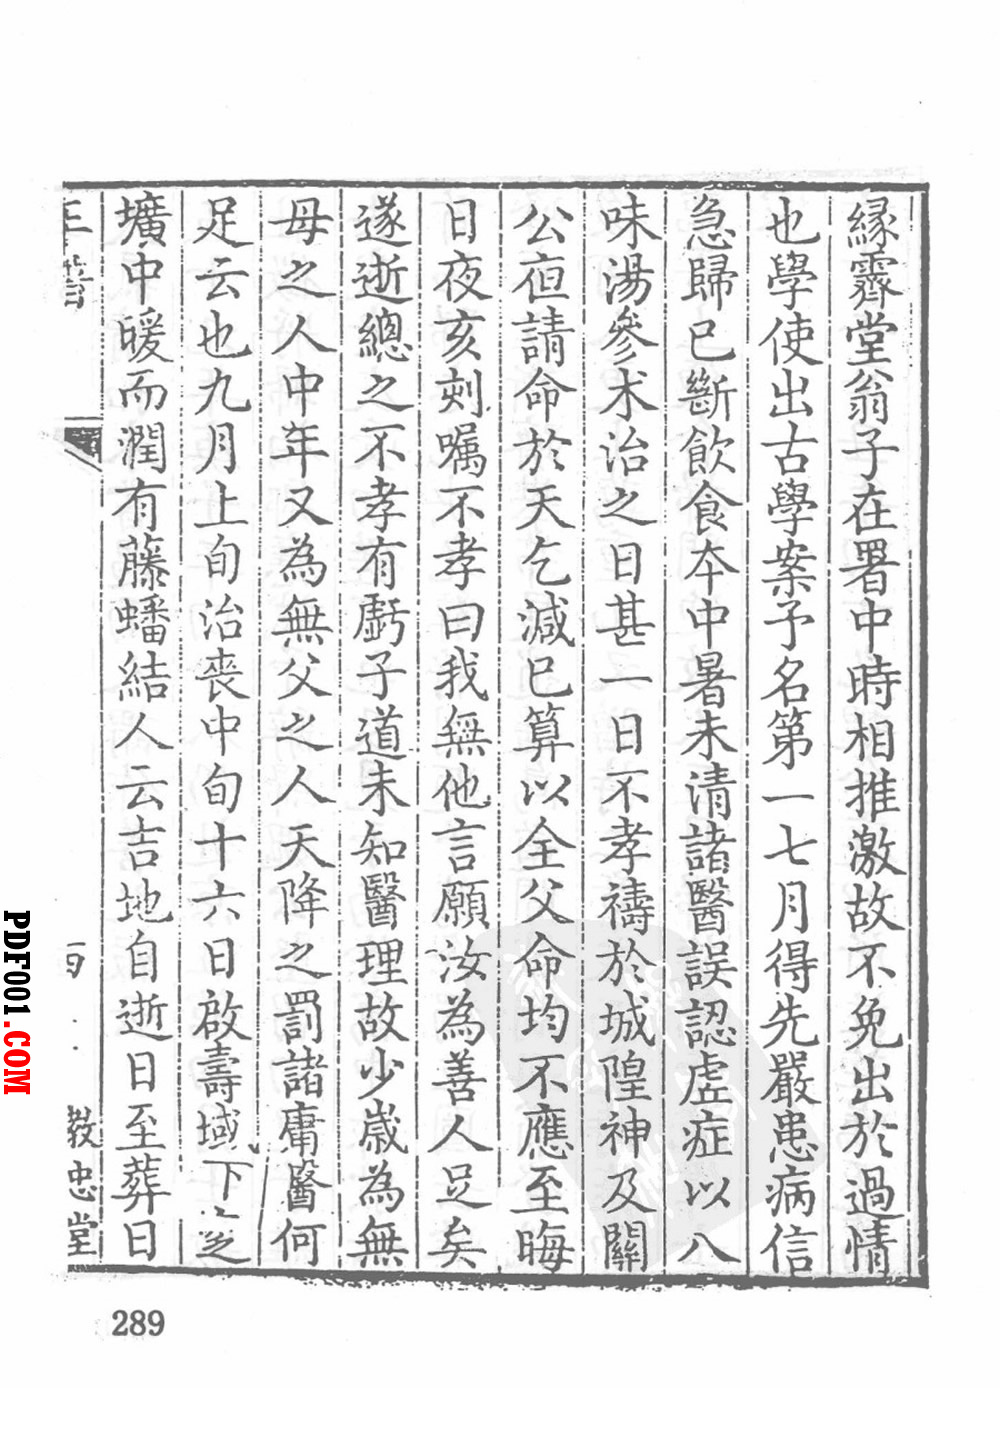 緣霽堂翁子在署中時相推激故不免出於過情
也學使出古學案予名第一七月得先嚴患病信
急歸已斷飲食本中暑未清諸醫誤認虛症以八
味湯參术治之日甚一日不孝禱於城隍神及關
公夜請命於天乞減已算以全父命均不應至晦
日夜亥刻囑不孝曰我無他言願汝為善人足矣
遂逝總之不孝有虧子道未知醫理故少歲為無
母之人中年又為無父之人天降之罰諸庸醫何
足云也九月上旬治喪中旬十六日啟壽域下之
壙中暖而潤有藤蟠結人云吉地自逝日至葬日
教忠堂
289
PDF001.COM